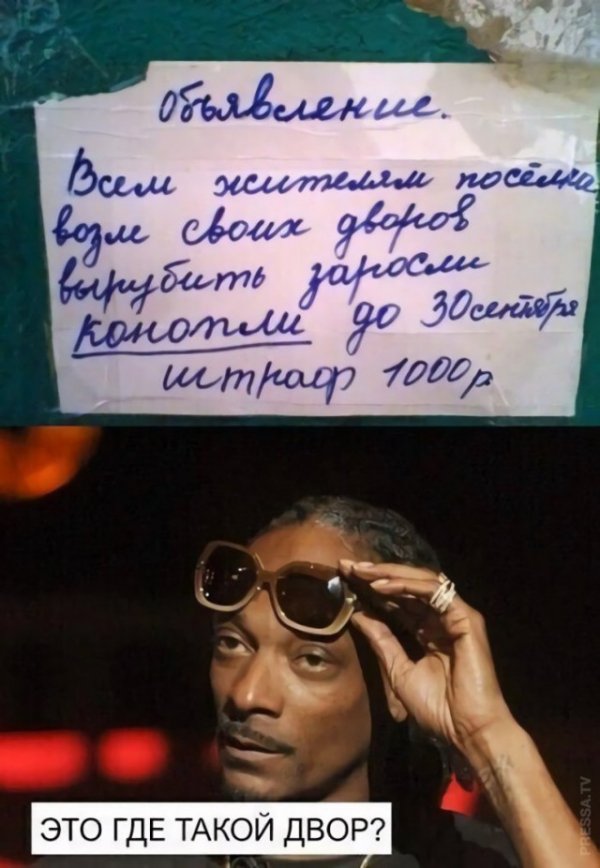 Объявление.
Всем жителям посёлка
возле своих дворов
вырубить заросли
конопли до 30 сентября
штраф 1000 р
ЭТО ГДЕ ТАКОЙ ДВОР?
PRESSA.TV